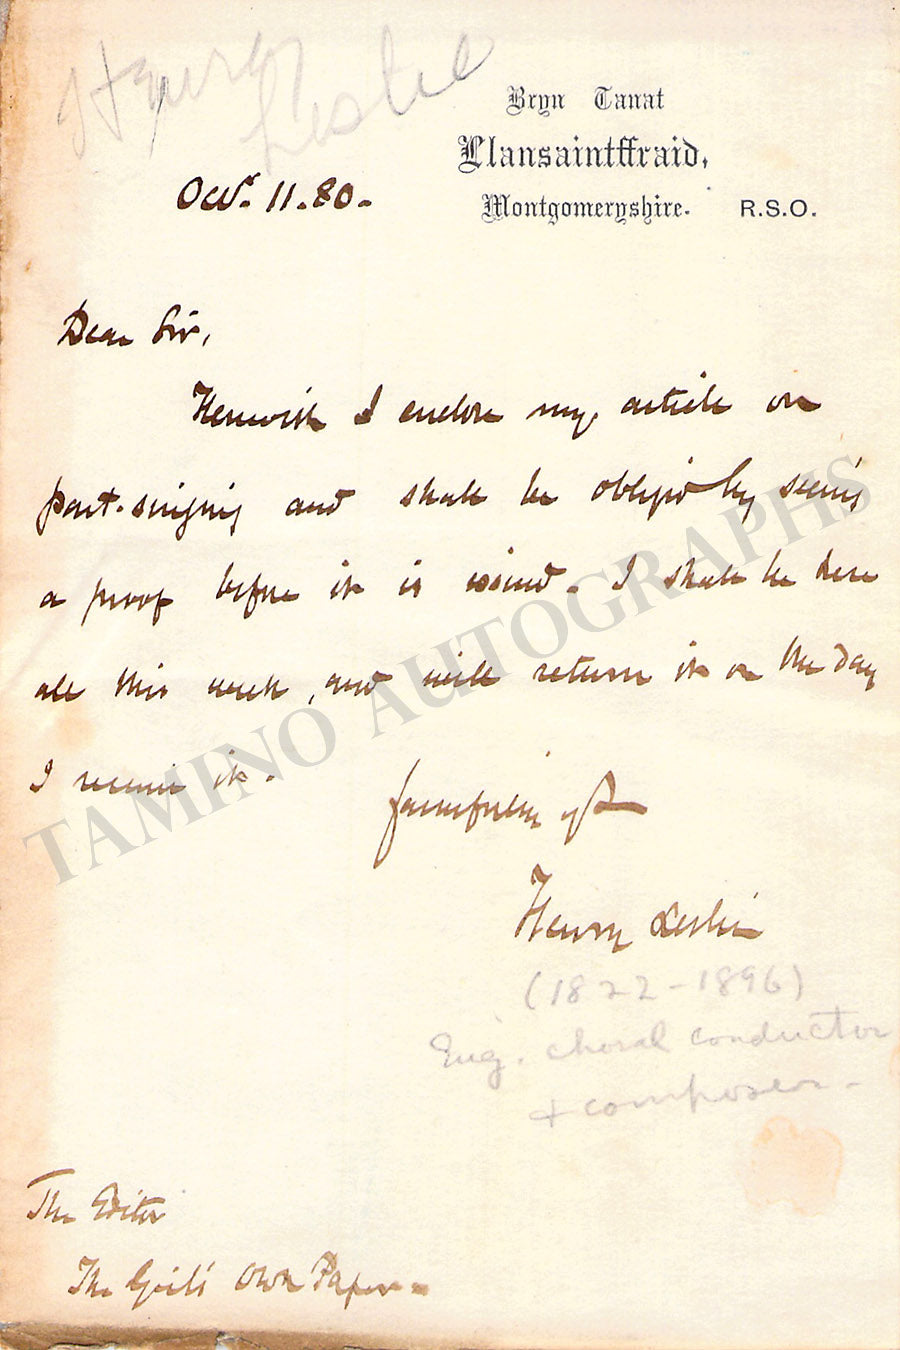 Henry
Leslie
Bryn Tanat
Llansaintffraid,
Montgomeryshire. R.S.O.
Octr. 11. 80.
Dear Sir,
Herewith I enclose my article on
part-singing and shall be obliged by seeing
a proof before it is issued. I shall be here
all this week, and will return it on the day
I receive it.
faithfully yrs
Henry Leslie
(1822-1896)
Eng. choral conductor
+ composer.
The Editor
The Girl's Own Paper.
TAMINO AUTOGRAPHS